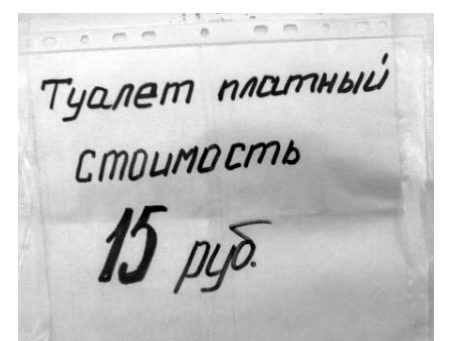 Туалет платный
стоимость
15 руб.